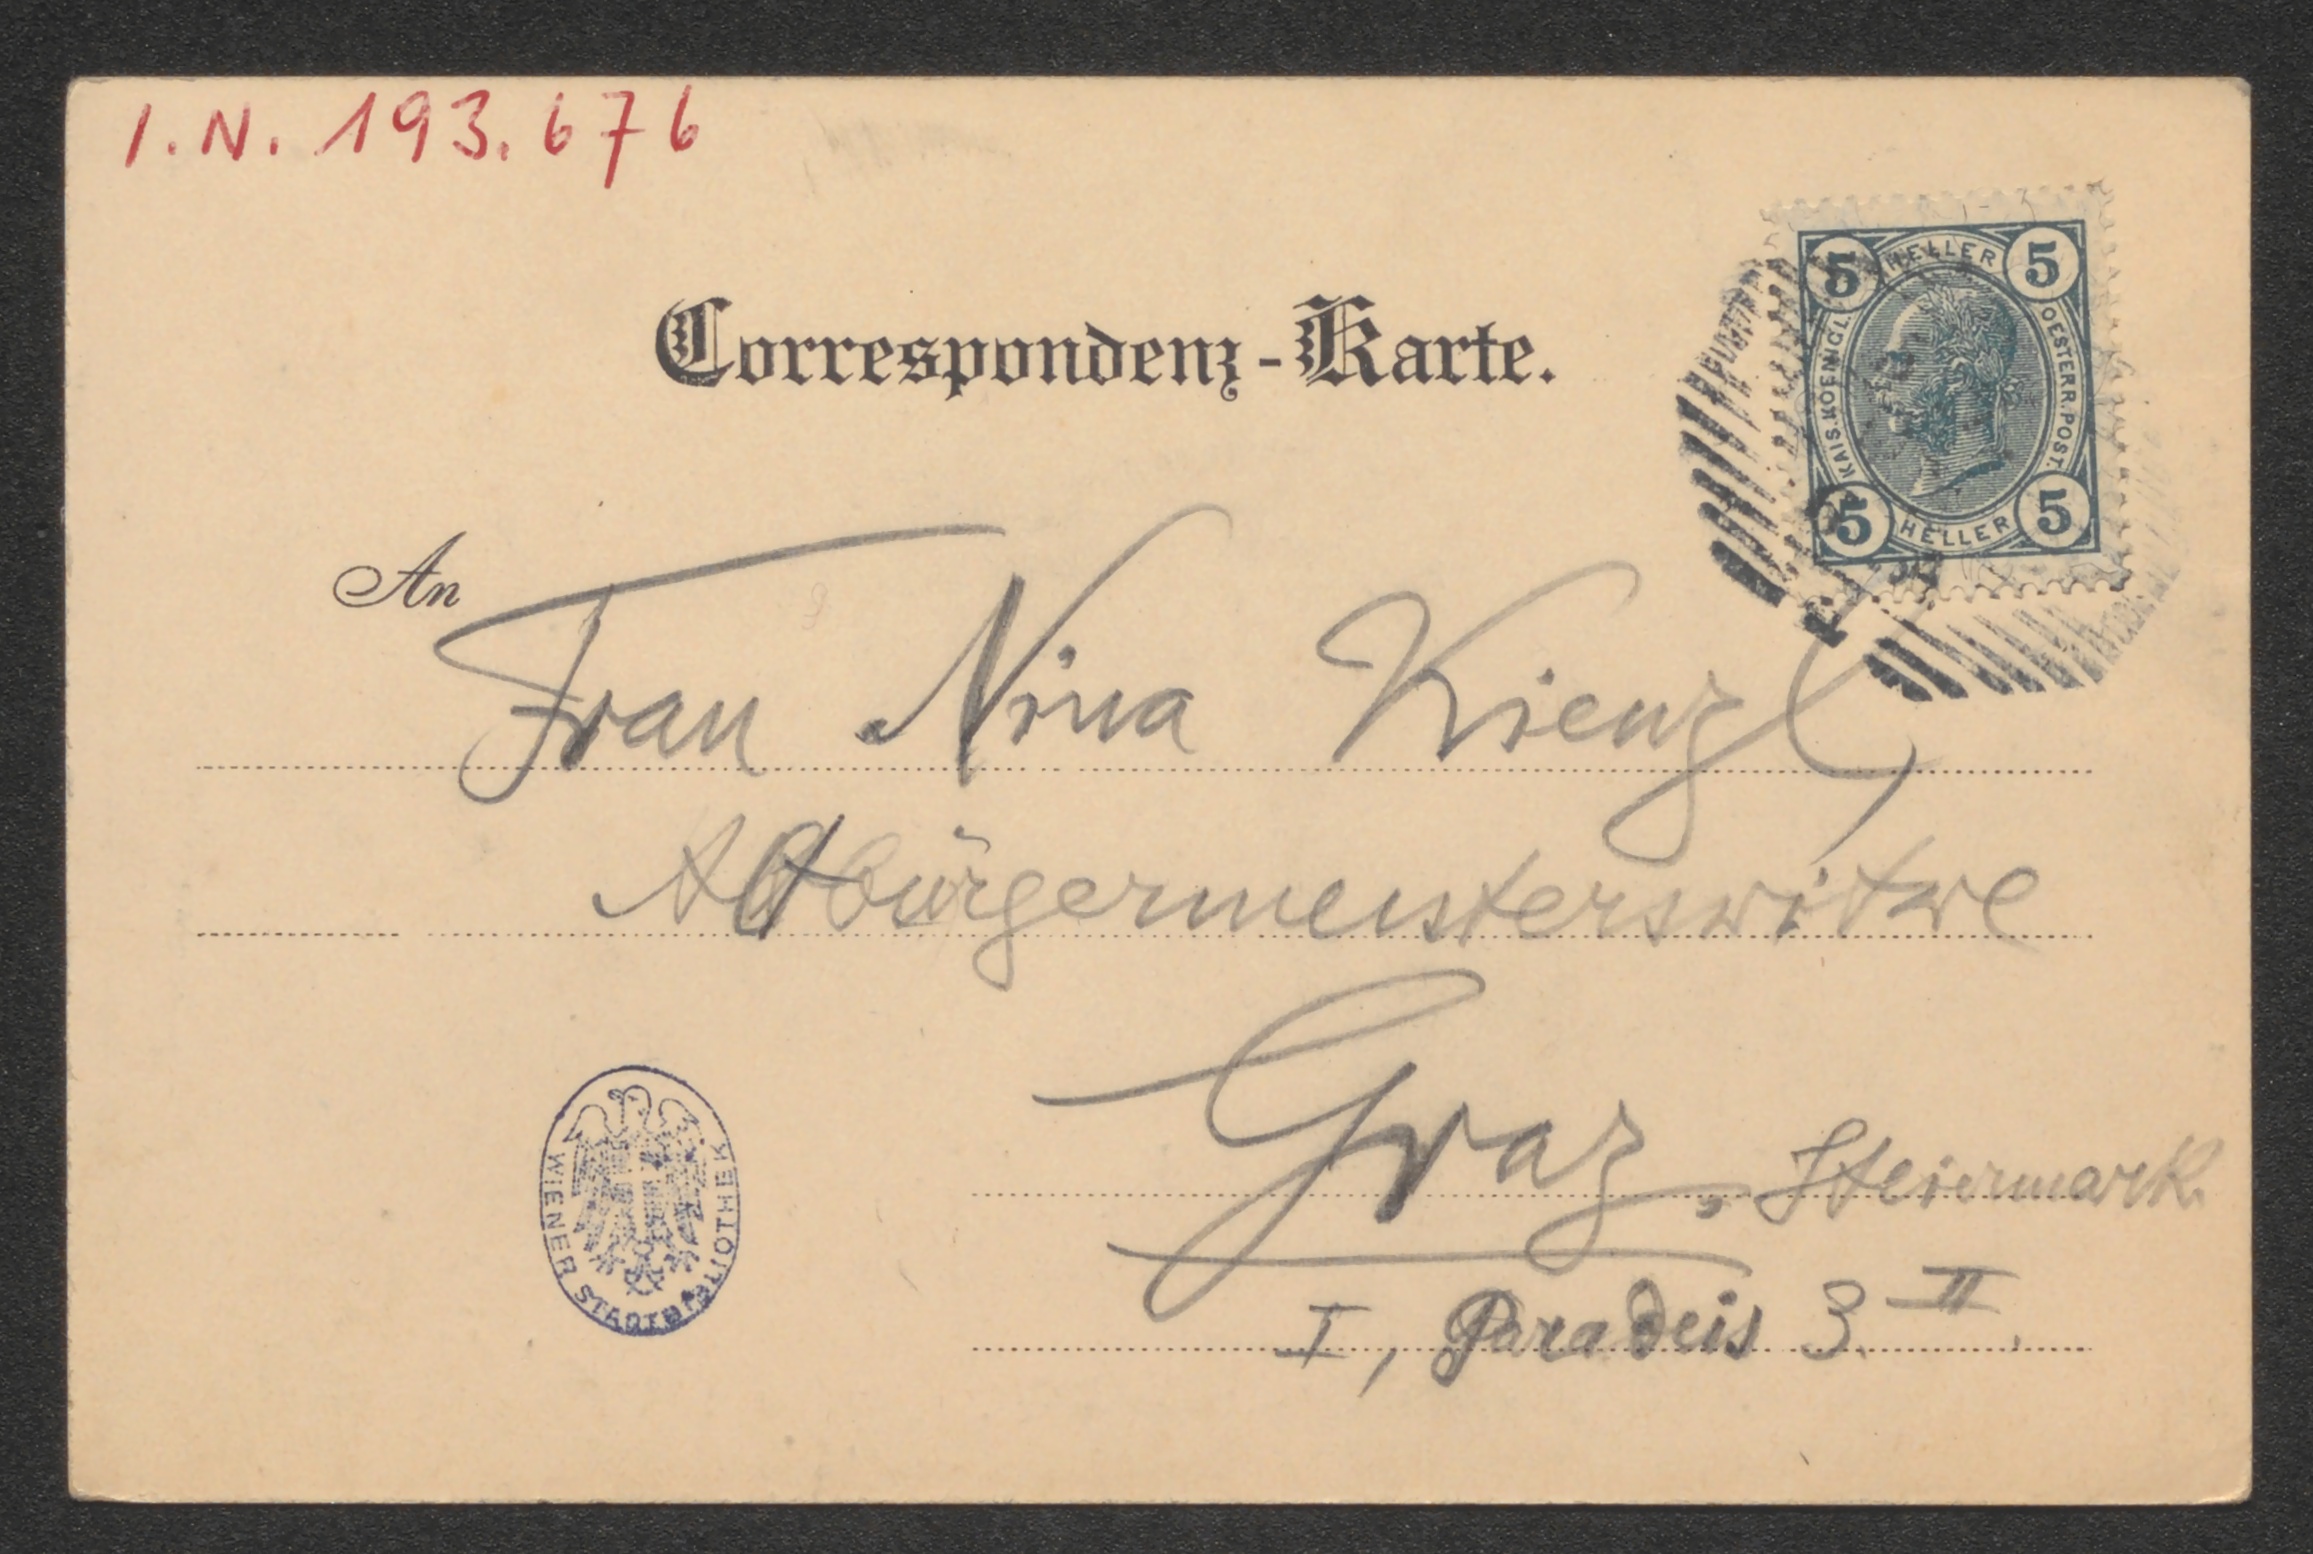 I.N. 193.676
Correspondenz-Karte.
5 HELLER 5
KAIS. KOENIGL. OESTERR. POST.
5 HELLER 5
An Frau Nina Kienzl,
Altbürgermeisterswitwe
Graz, Steiermark.
I, Paradeis 3. II.
WIENER STADTBIBLIOTHEK